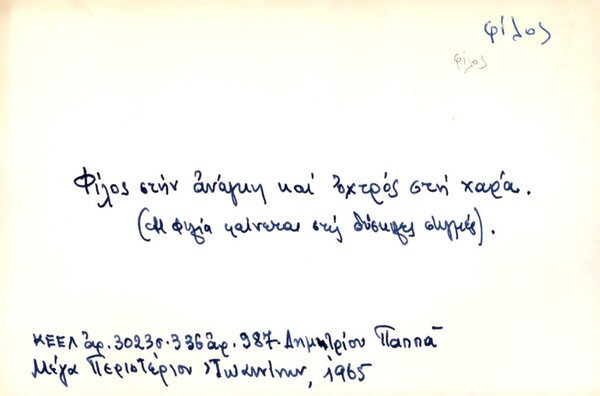 φίλος
φίλος
Φίλος στήν ἀνάγκη καί ὀχτρός στή χαρά.
(Ἡ φιλία φαίνεται στίς δύσκολες στιγμές).
ΚΕΕΛ ἀρ. 3023 σ. 336 ἀρ. 987. Δημητρίου Παππᾶ
Μέγα Περιστέριον Ἰωαννίνων, 1965